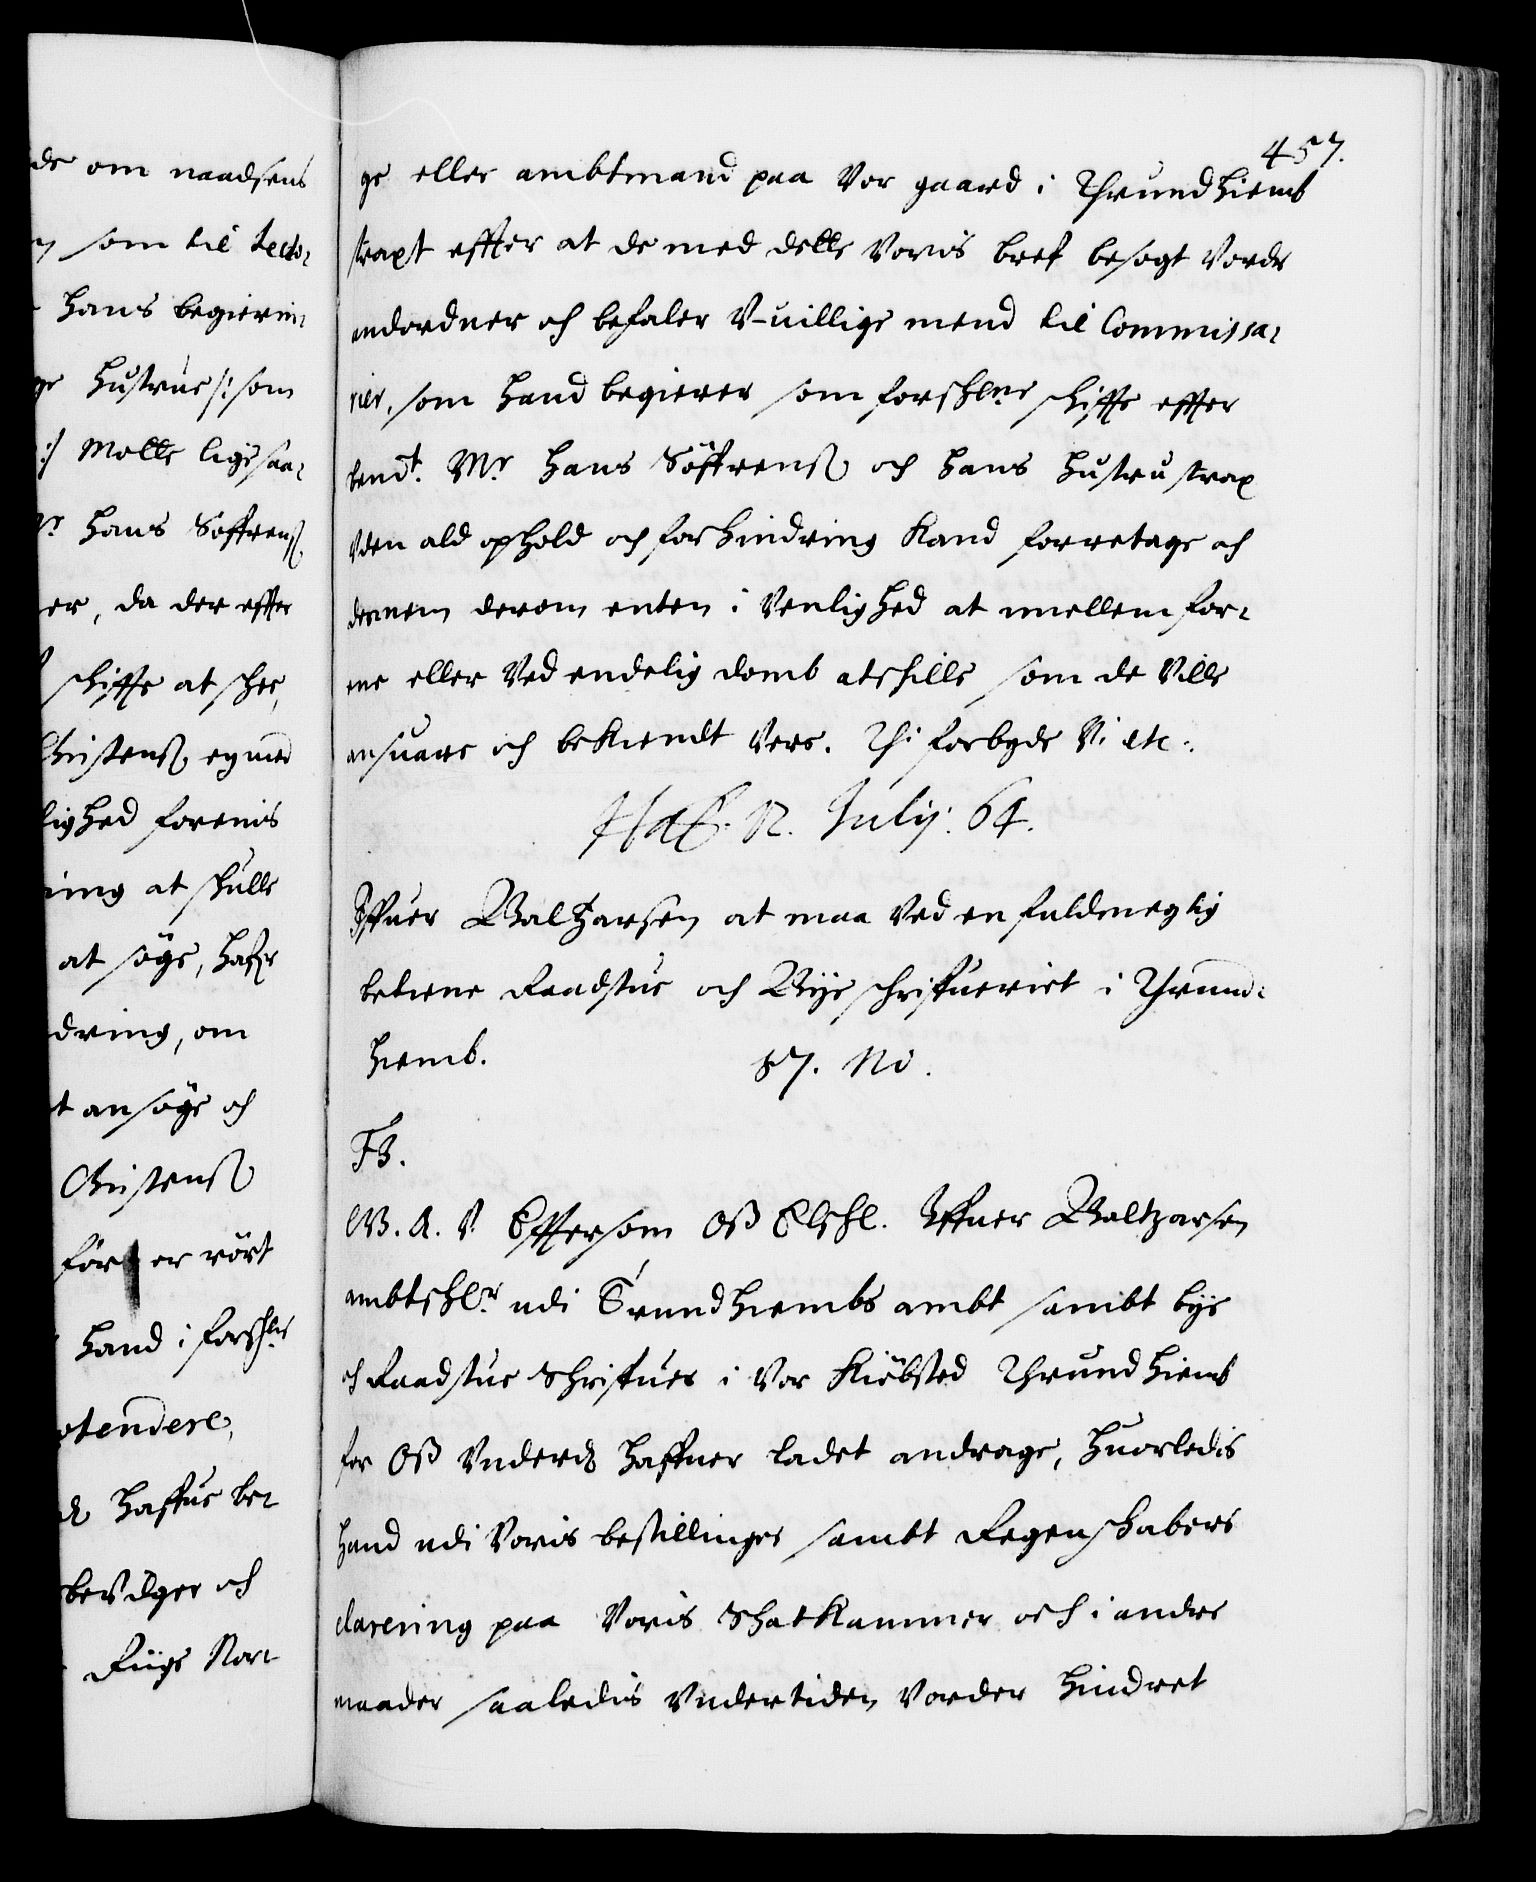 de om naadsens
som til Lecto-
hans begierin-
ge hustrue /: som
:/ Motte ligesaa-
Mr hans Söffrenß
er, da der effter
schiffte at schee,
Christenß egner
lighed forenis
ing at skulle
at söge, hafr
dring, om
t ansöge och
Christenß
för er rört
hand i forschne
tendere,
haffue be-
bevilger och
Riigs Nor-
457.
ge eller ambtmand paa Vor gaard i Thrundhiemb
straxt effter at de med dette Voris bref besogt Vorde
andordner och befaler V-uillige mend til Commissa-
rier, som hand begierer som forschne schiffte effter
bemt. Mr hans Söffrenß och hans hustru strax
Vden ald ophold och forhindring kand forretage och
dennem derom enten i Venlighed at imellem for-
ene eller Ved endelig domb atskille som de Ville
ansuare och bekiendt Vere. Thi forbyde Vi etc:
Haf. 12. Julij. 64.
Iffuer Baltzarsen at maa Ved en fuldmegtig
betiene Raadstue och Byeschriffueriet i Thrund-
hiemb. 57. No.
F3.
W. A. V. Effersom Oß Elschl. Iffuer Baltzarsen
ambtschr. udi Trundhiembs ambt sambt bye
och Raadstue Schriffuer i Vor Kiöbsted Thrundhiemb
for Oß Vnderd. haffuer ladet andrage, huorledis
hand udi Voris bestillinger sambt Regenskabers
clarering paa Voris Schatkammer och i andre
maader saaledis Vndertiden Vorder hindret